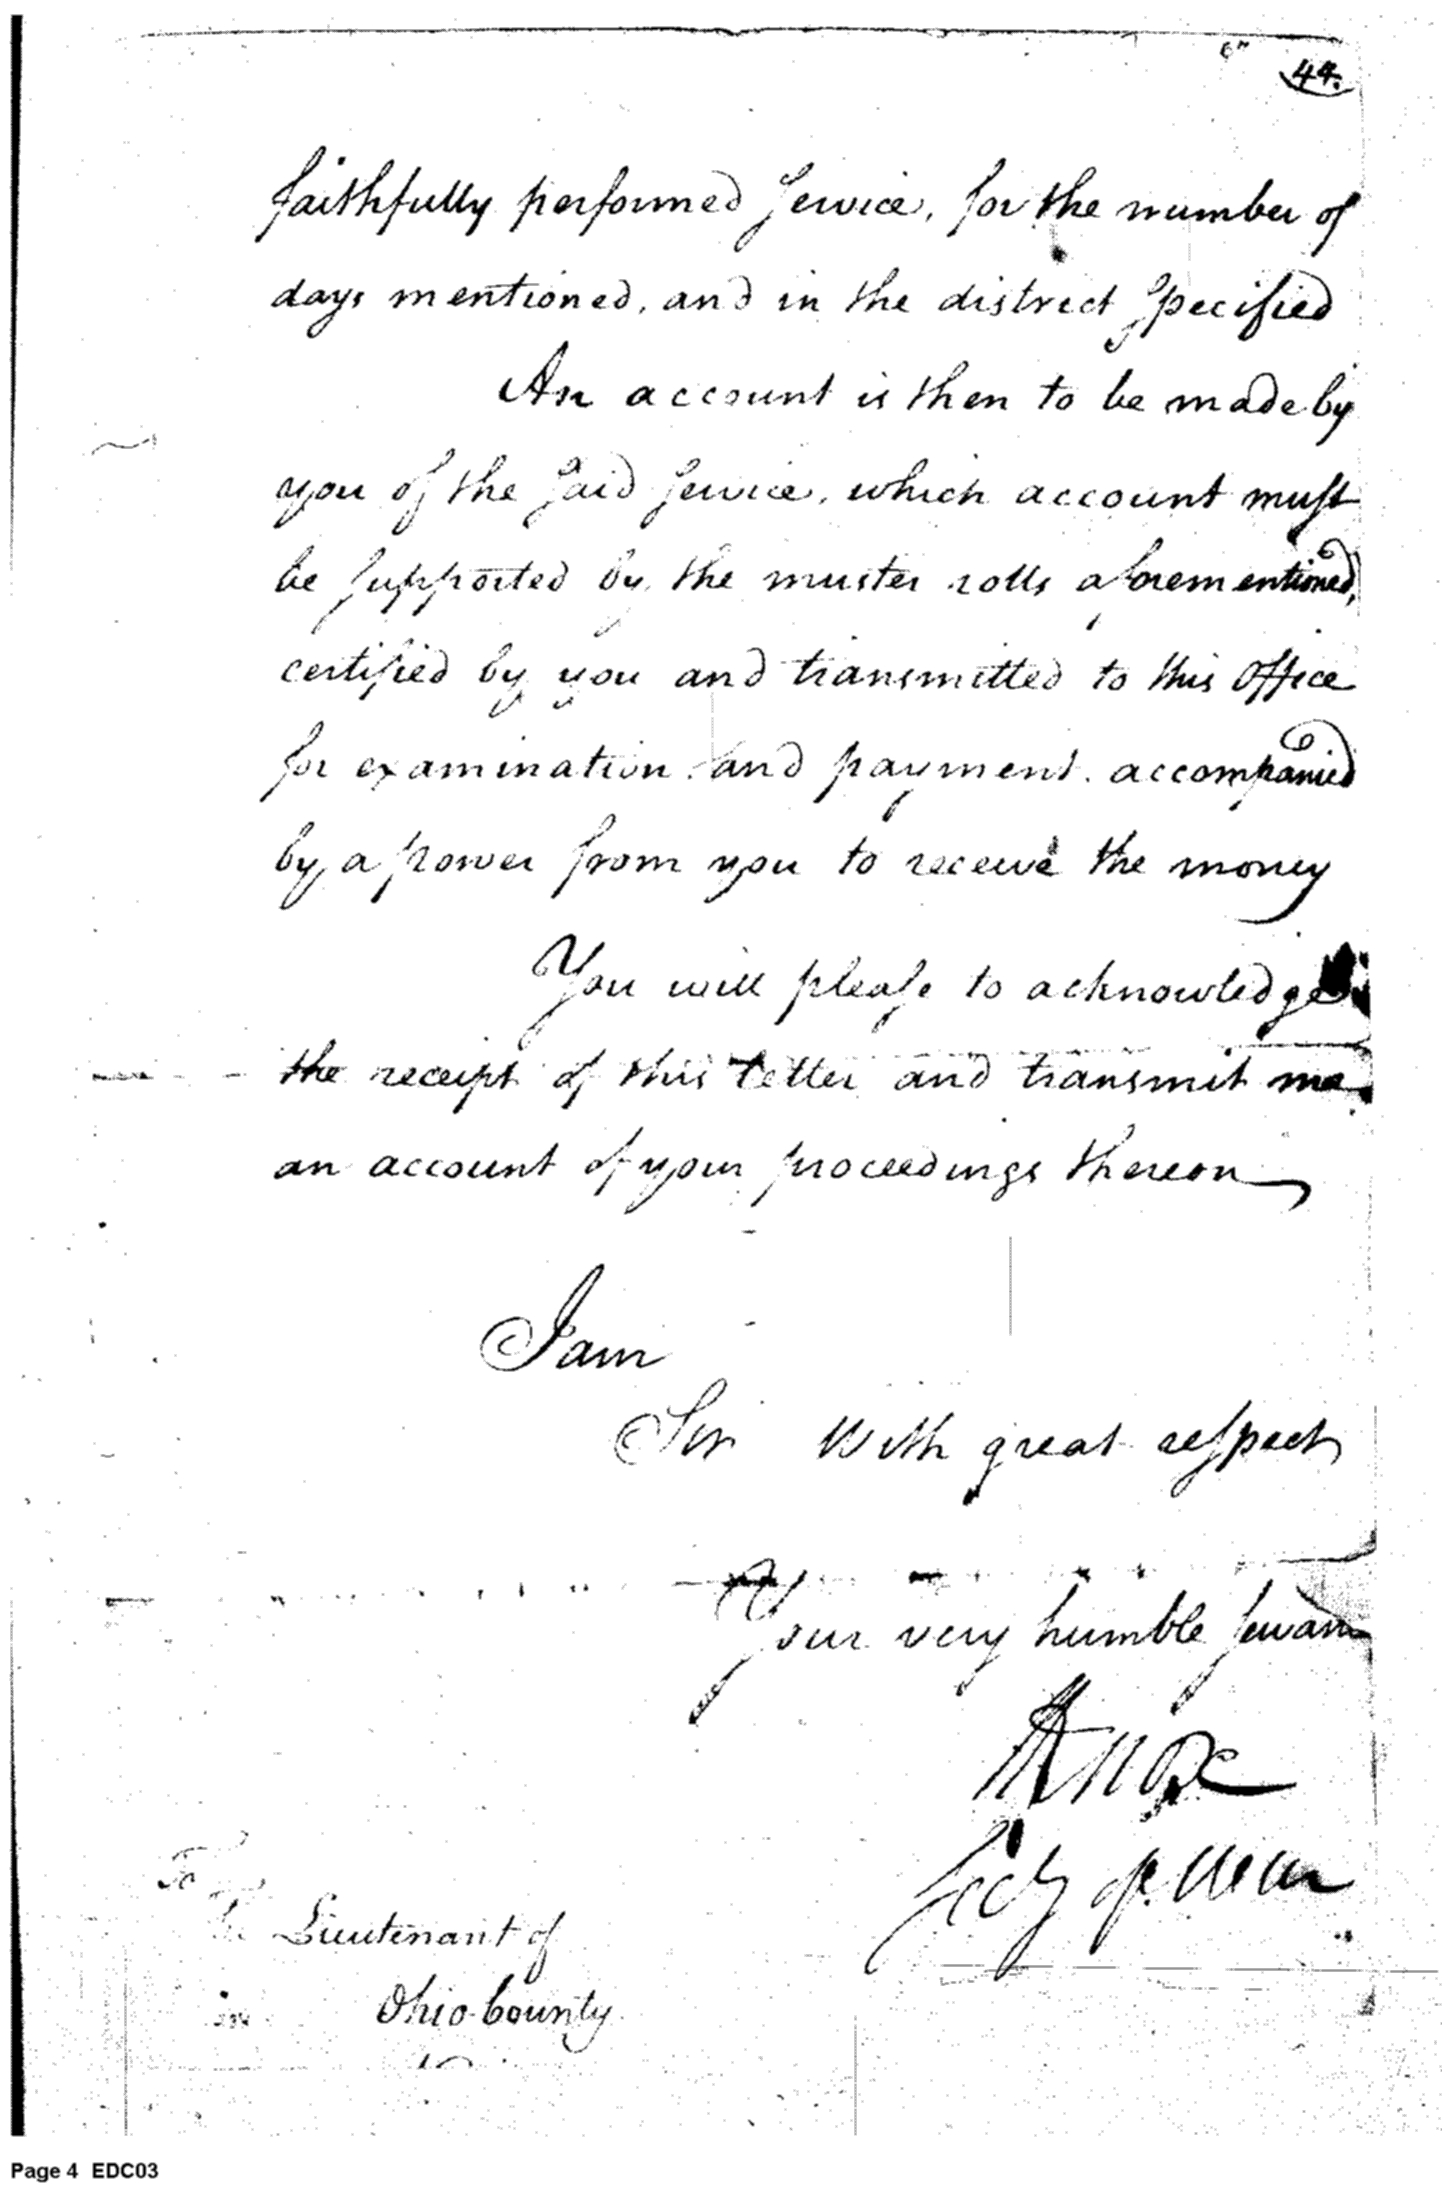 44.
faithfully performed service, for the number of
days mentioned, and in the district specified
An account is then to be made by
you of the said service, which account must
be supported by the muster rolls aforementioned,
certified by you and transmitted to this Office
for examination and payment. accompanied
by a power from you to receive the money
You will please to acknowledge
the receipt of this letter and transmit me
an account of your proceedings thereon
I am
Sir With great respect
Your very humble servan
HKnox
Secy of War
To
The Lieutenant of
Ohio County
Page 4 EDC03